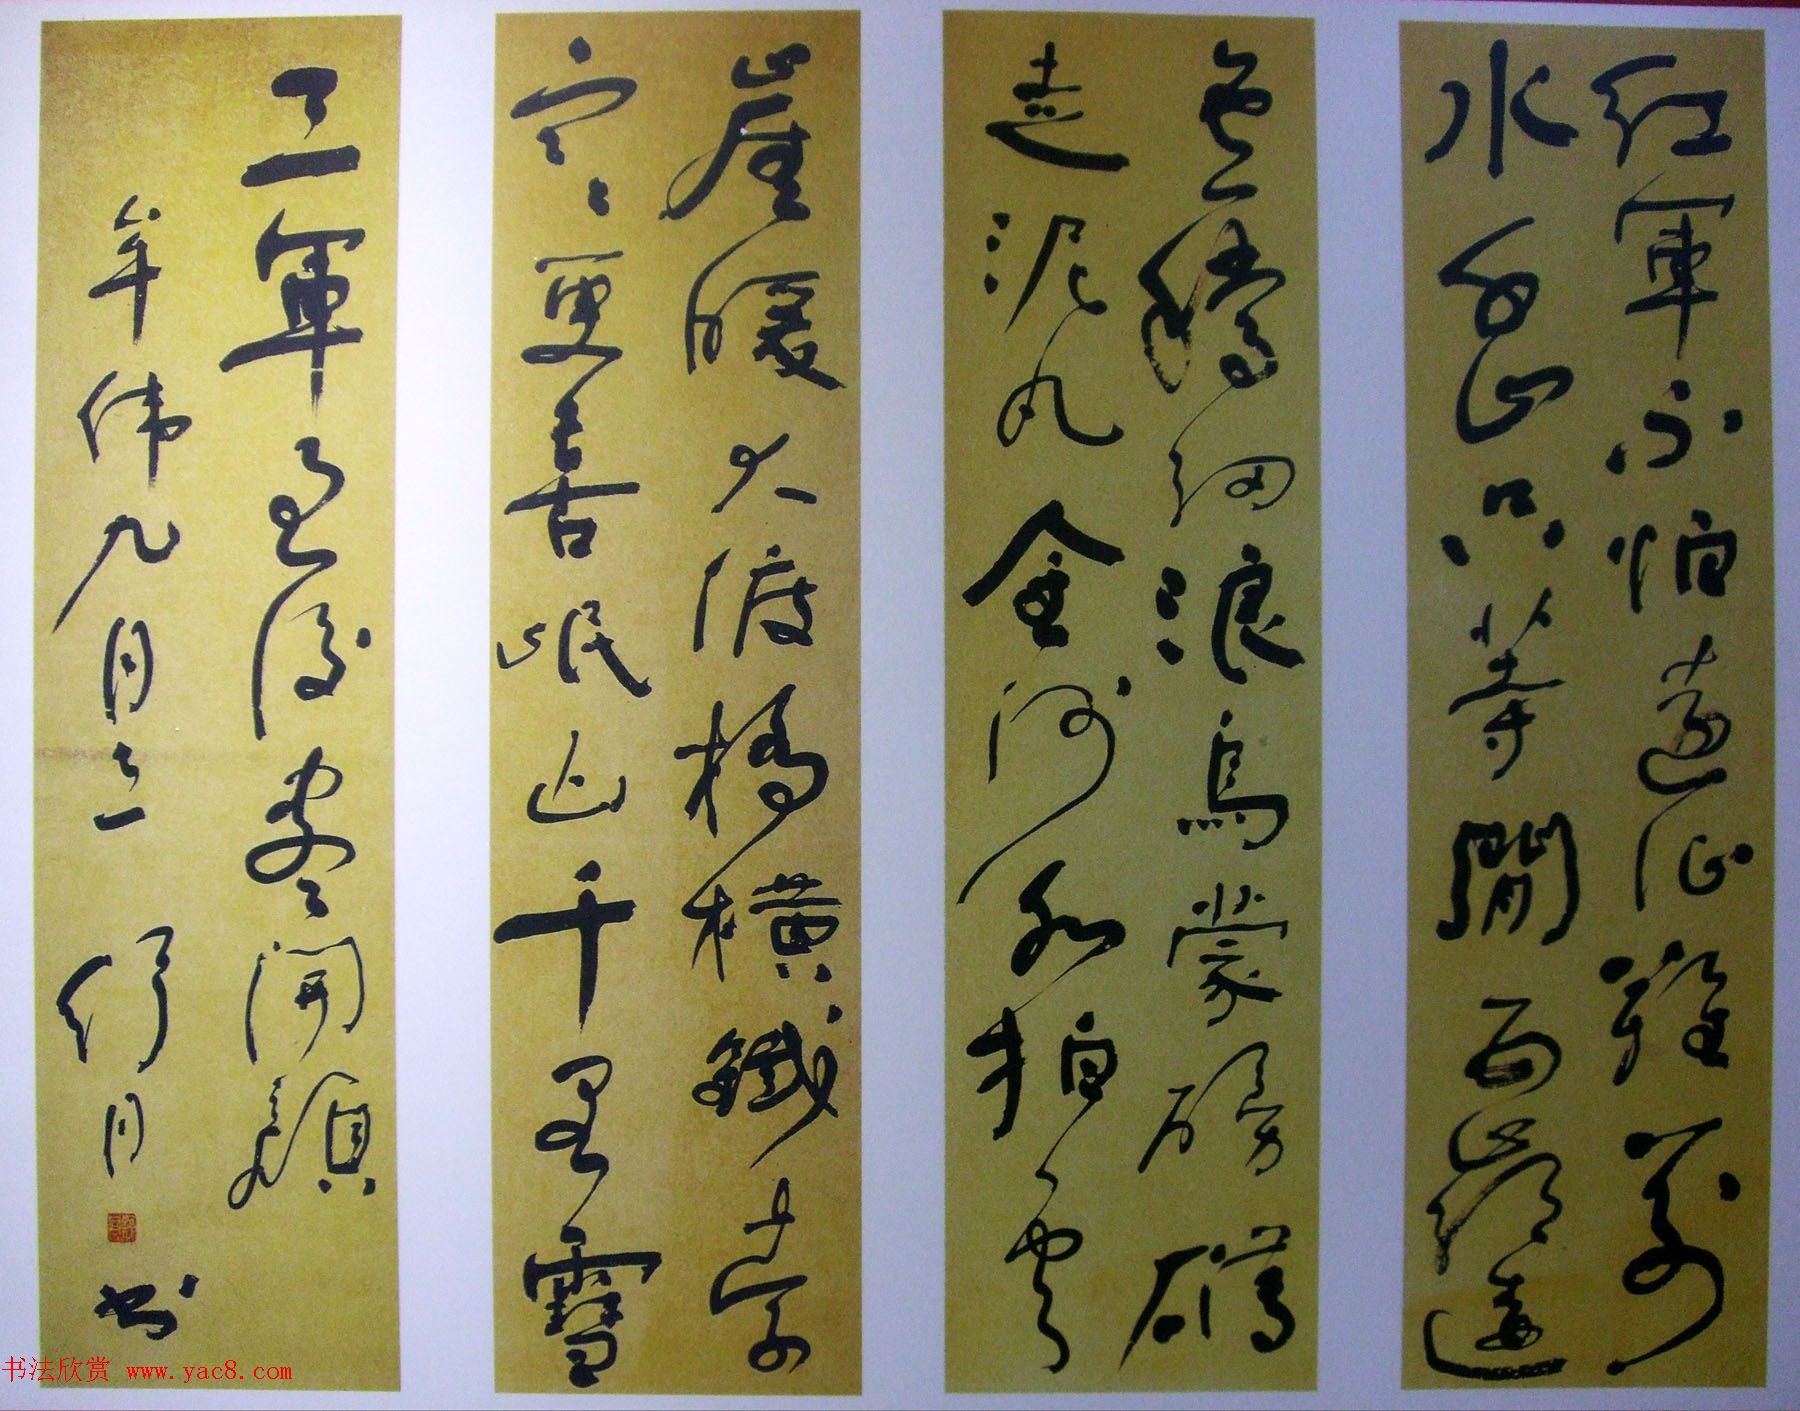 紅軍不怕遠征難萬
水千山只等閒五嶺逶
迤騰細浪烏蒙磅礴
走泥丸金沙水拍雲
崖暖大渡橋橫鐵索
寒更喜岷山千里雪
三軍過後盡開顏
年偉九月三 書
书法欣赏 www.yac8.com